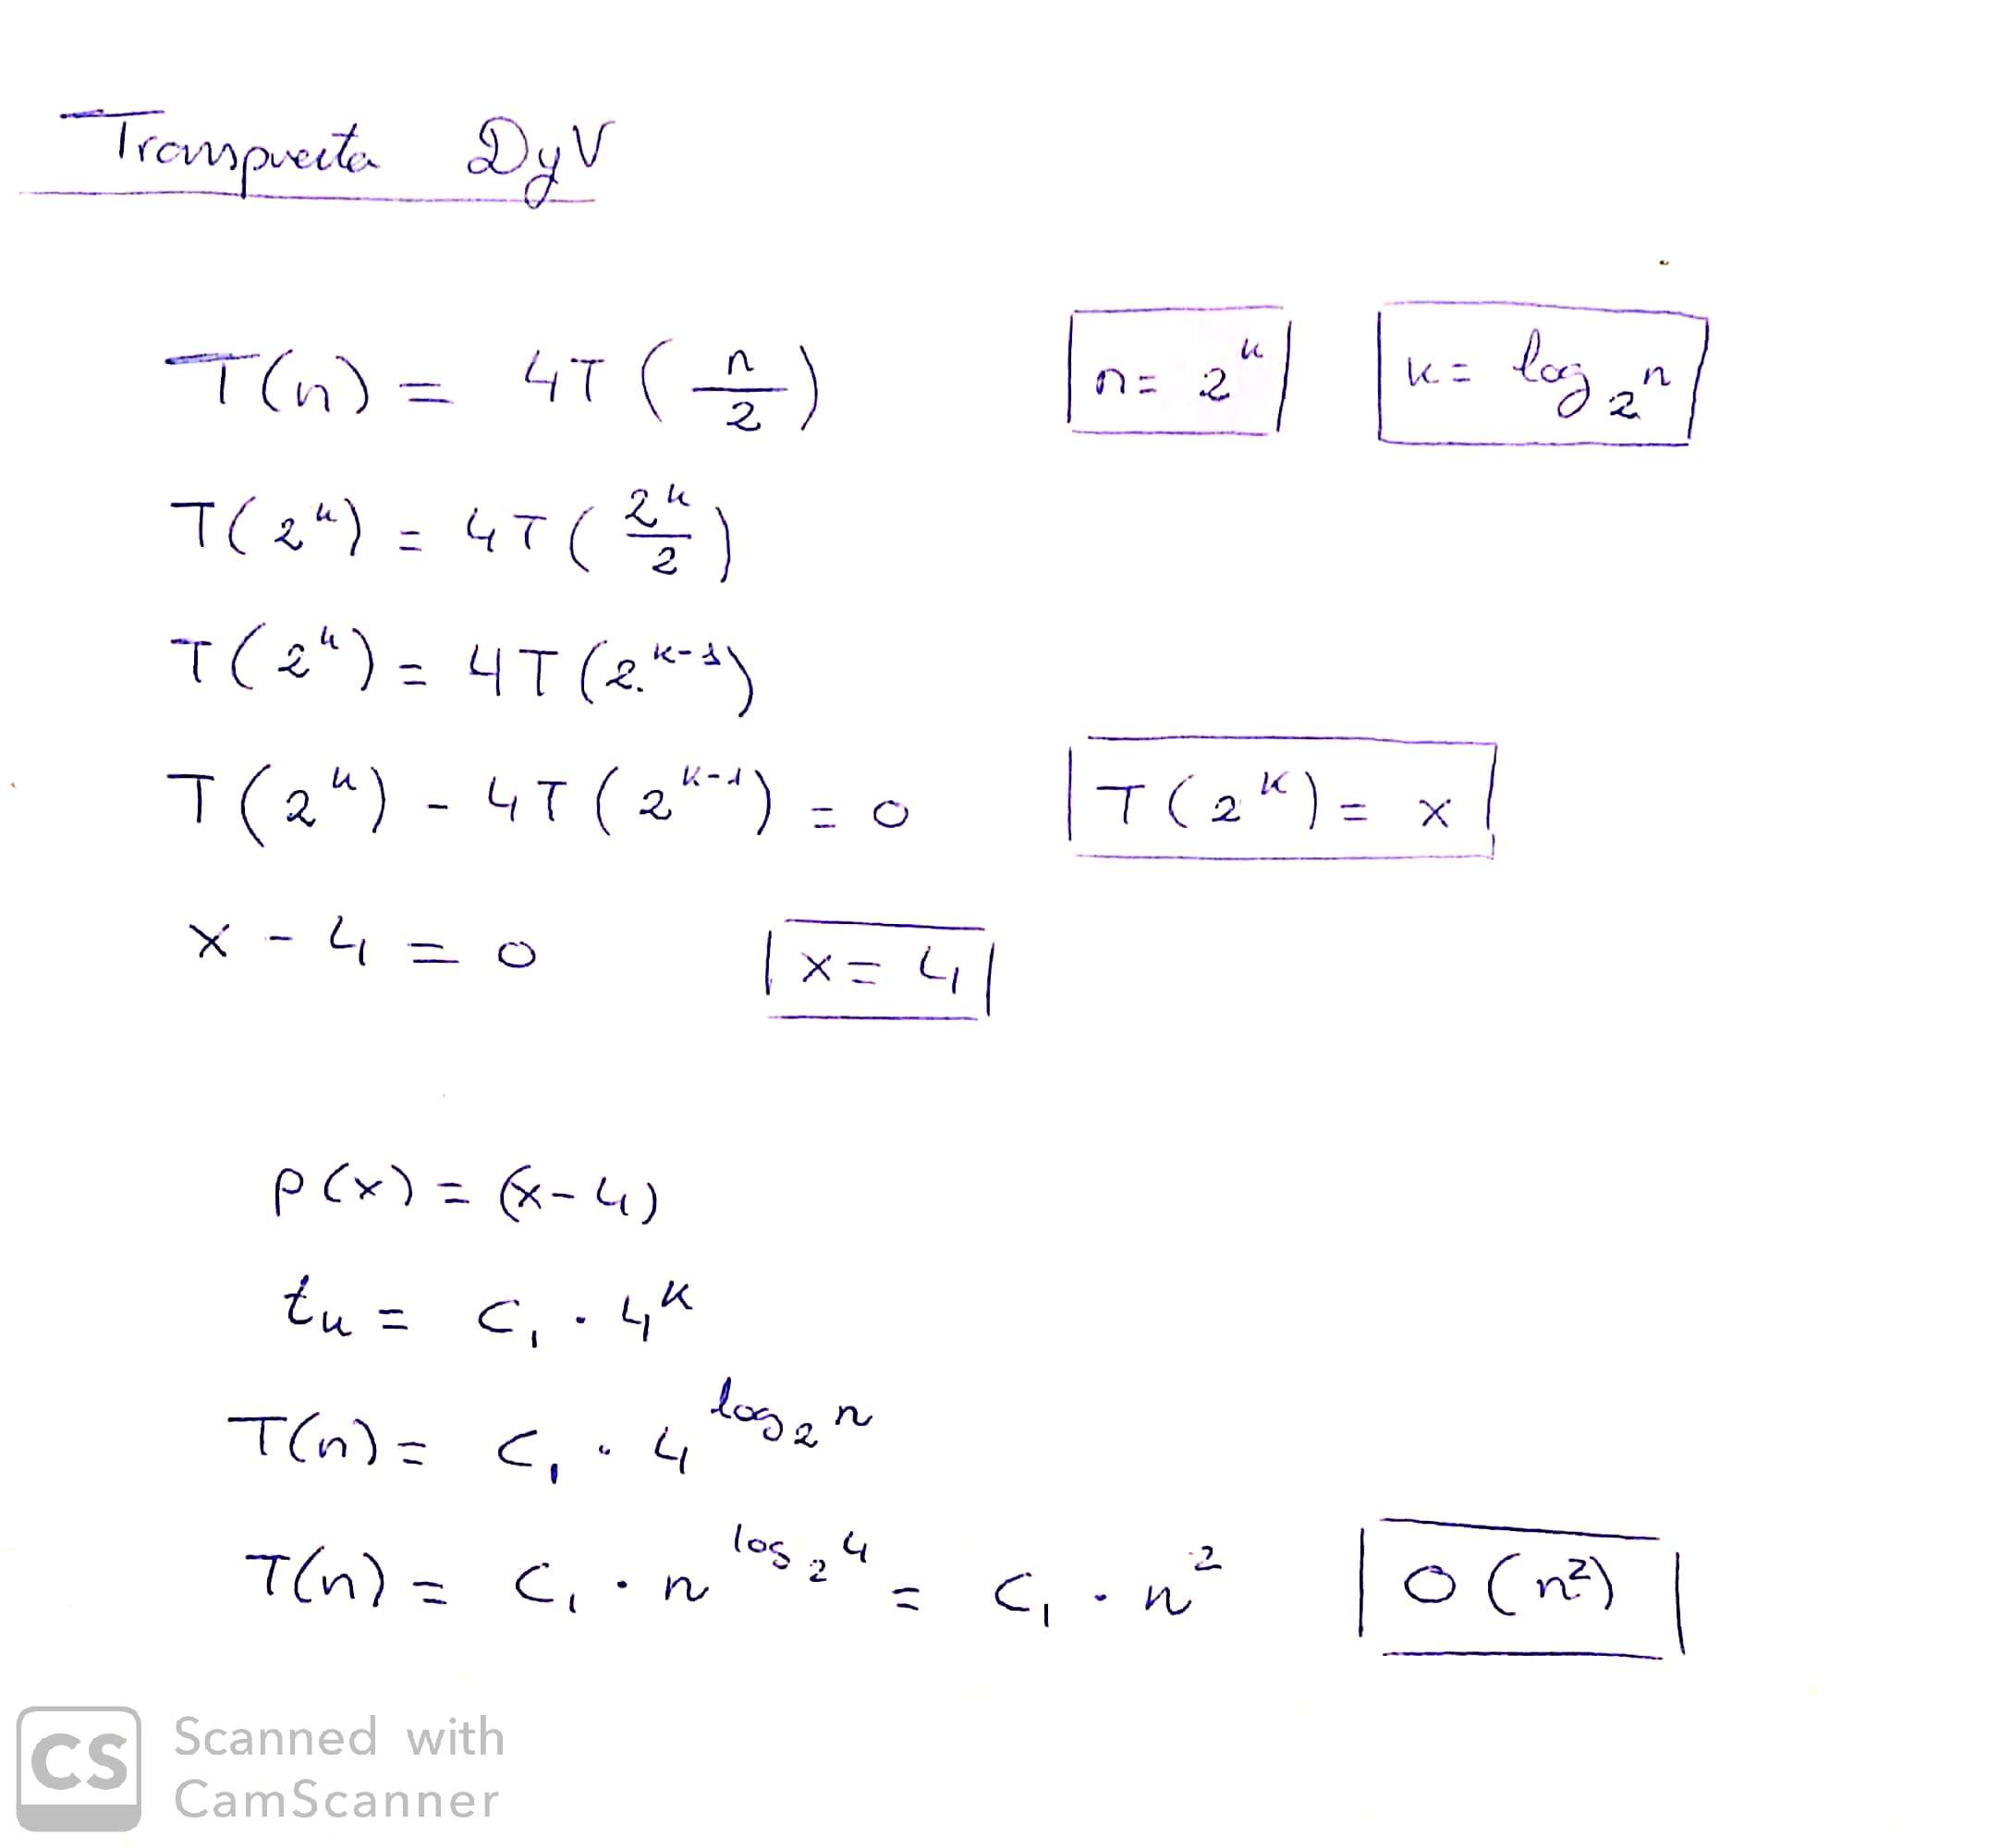 Transpuesta DyV
T(n) = 4T(n/2) n = 2^k k = log_2 n
T(2^k) = 4T(2^k/2)
T(2^k) = 4T(2^{k-1})
T(2^k) - 4T(2^{k-1}) = 0 T(2^k) = x
x - 4 = 0 x = 4
p(x) = (x-4)
t_k = c_1 · 4^k
T(n) = c_1 · 4^{log_2 n}
T(n) = c_1 · n^{log_2 4} = c_1 · n^2 O(n^2)
CS Scanned with
CamScanner